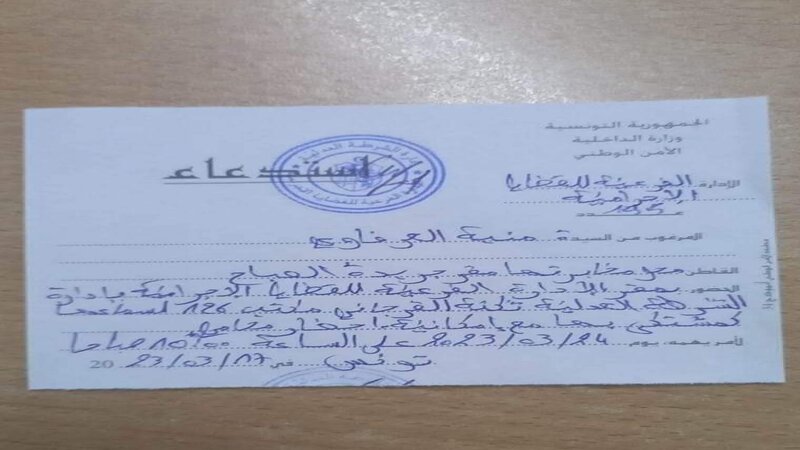 الجمهورية التونسية
وزارة الداخلية
الأمن الوطني
الإدارة الفرعية للقضايا
الإجرامية
عـــدد
استدعاء
المرغوب من السيدة منية العرفاوي
القاطن مقر جريدة الصباح
الحضور بمقر الإدارة الفرعية للقضايا الإجرامية بإدارة
الشرطة العدلية ثكنة القرجاني مكتب 126 لسماعها
كمشتكى بها مع إمكانية احضار محامي
لأمر يهمه يوم 2023/03/24 على الساعة 10:00 صباحا
تونس في 23/03/17 20